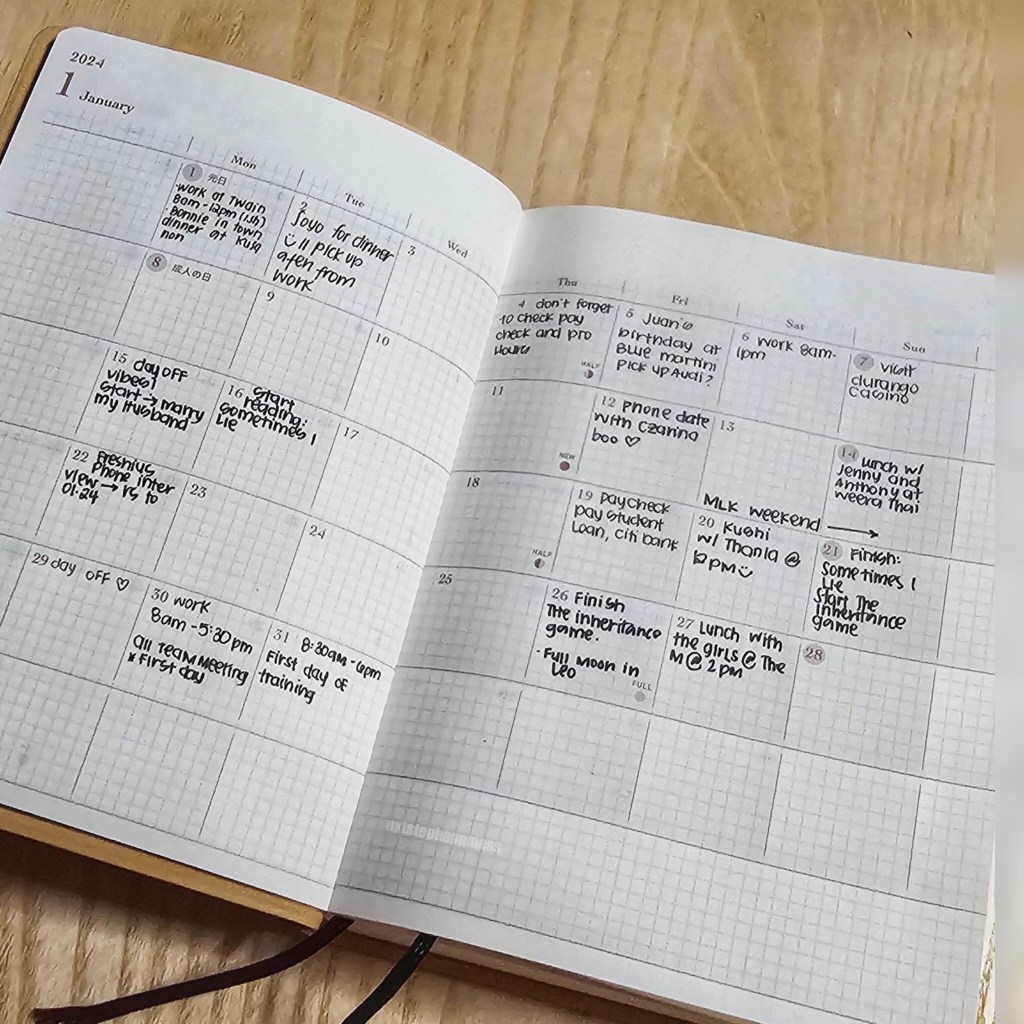 2024
1 January
Mon
Tue
Wed
1 元日
·work at Twain
8am-12pm (ish)
·Bonnie in town,
dinner at kusa
non
2
Joyo for dinner
I'll pick up
after from
work
3
8 成人の日
9
10
15 day off
vibes!
Start → marry
my Husband
16 Start
reading:
Sometimes I
Lie
17
22 Fresnius
Phone inter
view → rs to
01.24
23
24
29 day off ♡
30 work
8am-5:30pm
All Team Meeting
* First day
31 8:30am-6pm
First day of
training
Thu
Fri
Sat
Sun
4 don't forget
to check pay
check and pro
Hours
HALF
5 Juan's
birthday at
Blue martini
Pick up Audi?
6 work 8am-
1pm
7 visit
durango
Casino
11
NEW
12 phone date
with Czarina
boo ♡
13
14 Lunch w/
Jenny and
Anthony at
weera thai
MLK weekend →
18
HALF
19 paycheck
pay student
Loan, citi bank
20 Kushi
w/ Thania @
12pm
21 Finish:
Sometimes I
Lie
Start The
Inheritance
game
25
26 Finish
The inheritance
game.
·Full moon in
Leo
FULL
27 Lunch with
the girls @ The
M @ 2pm
28